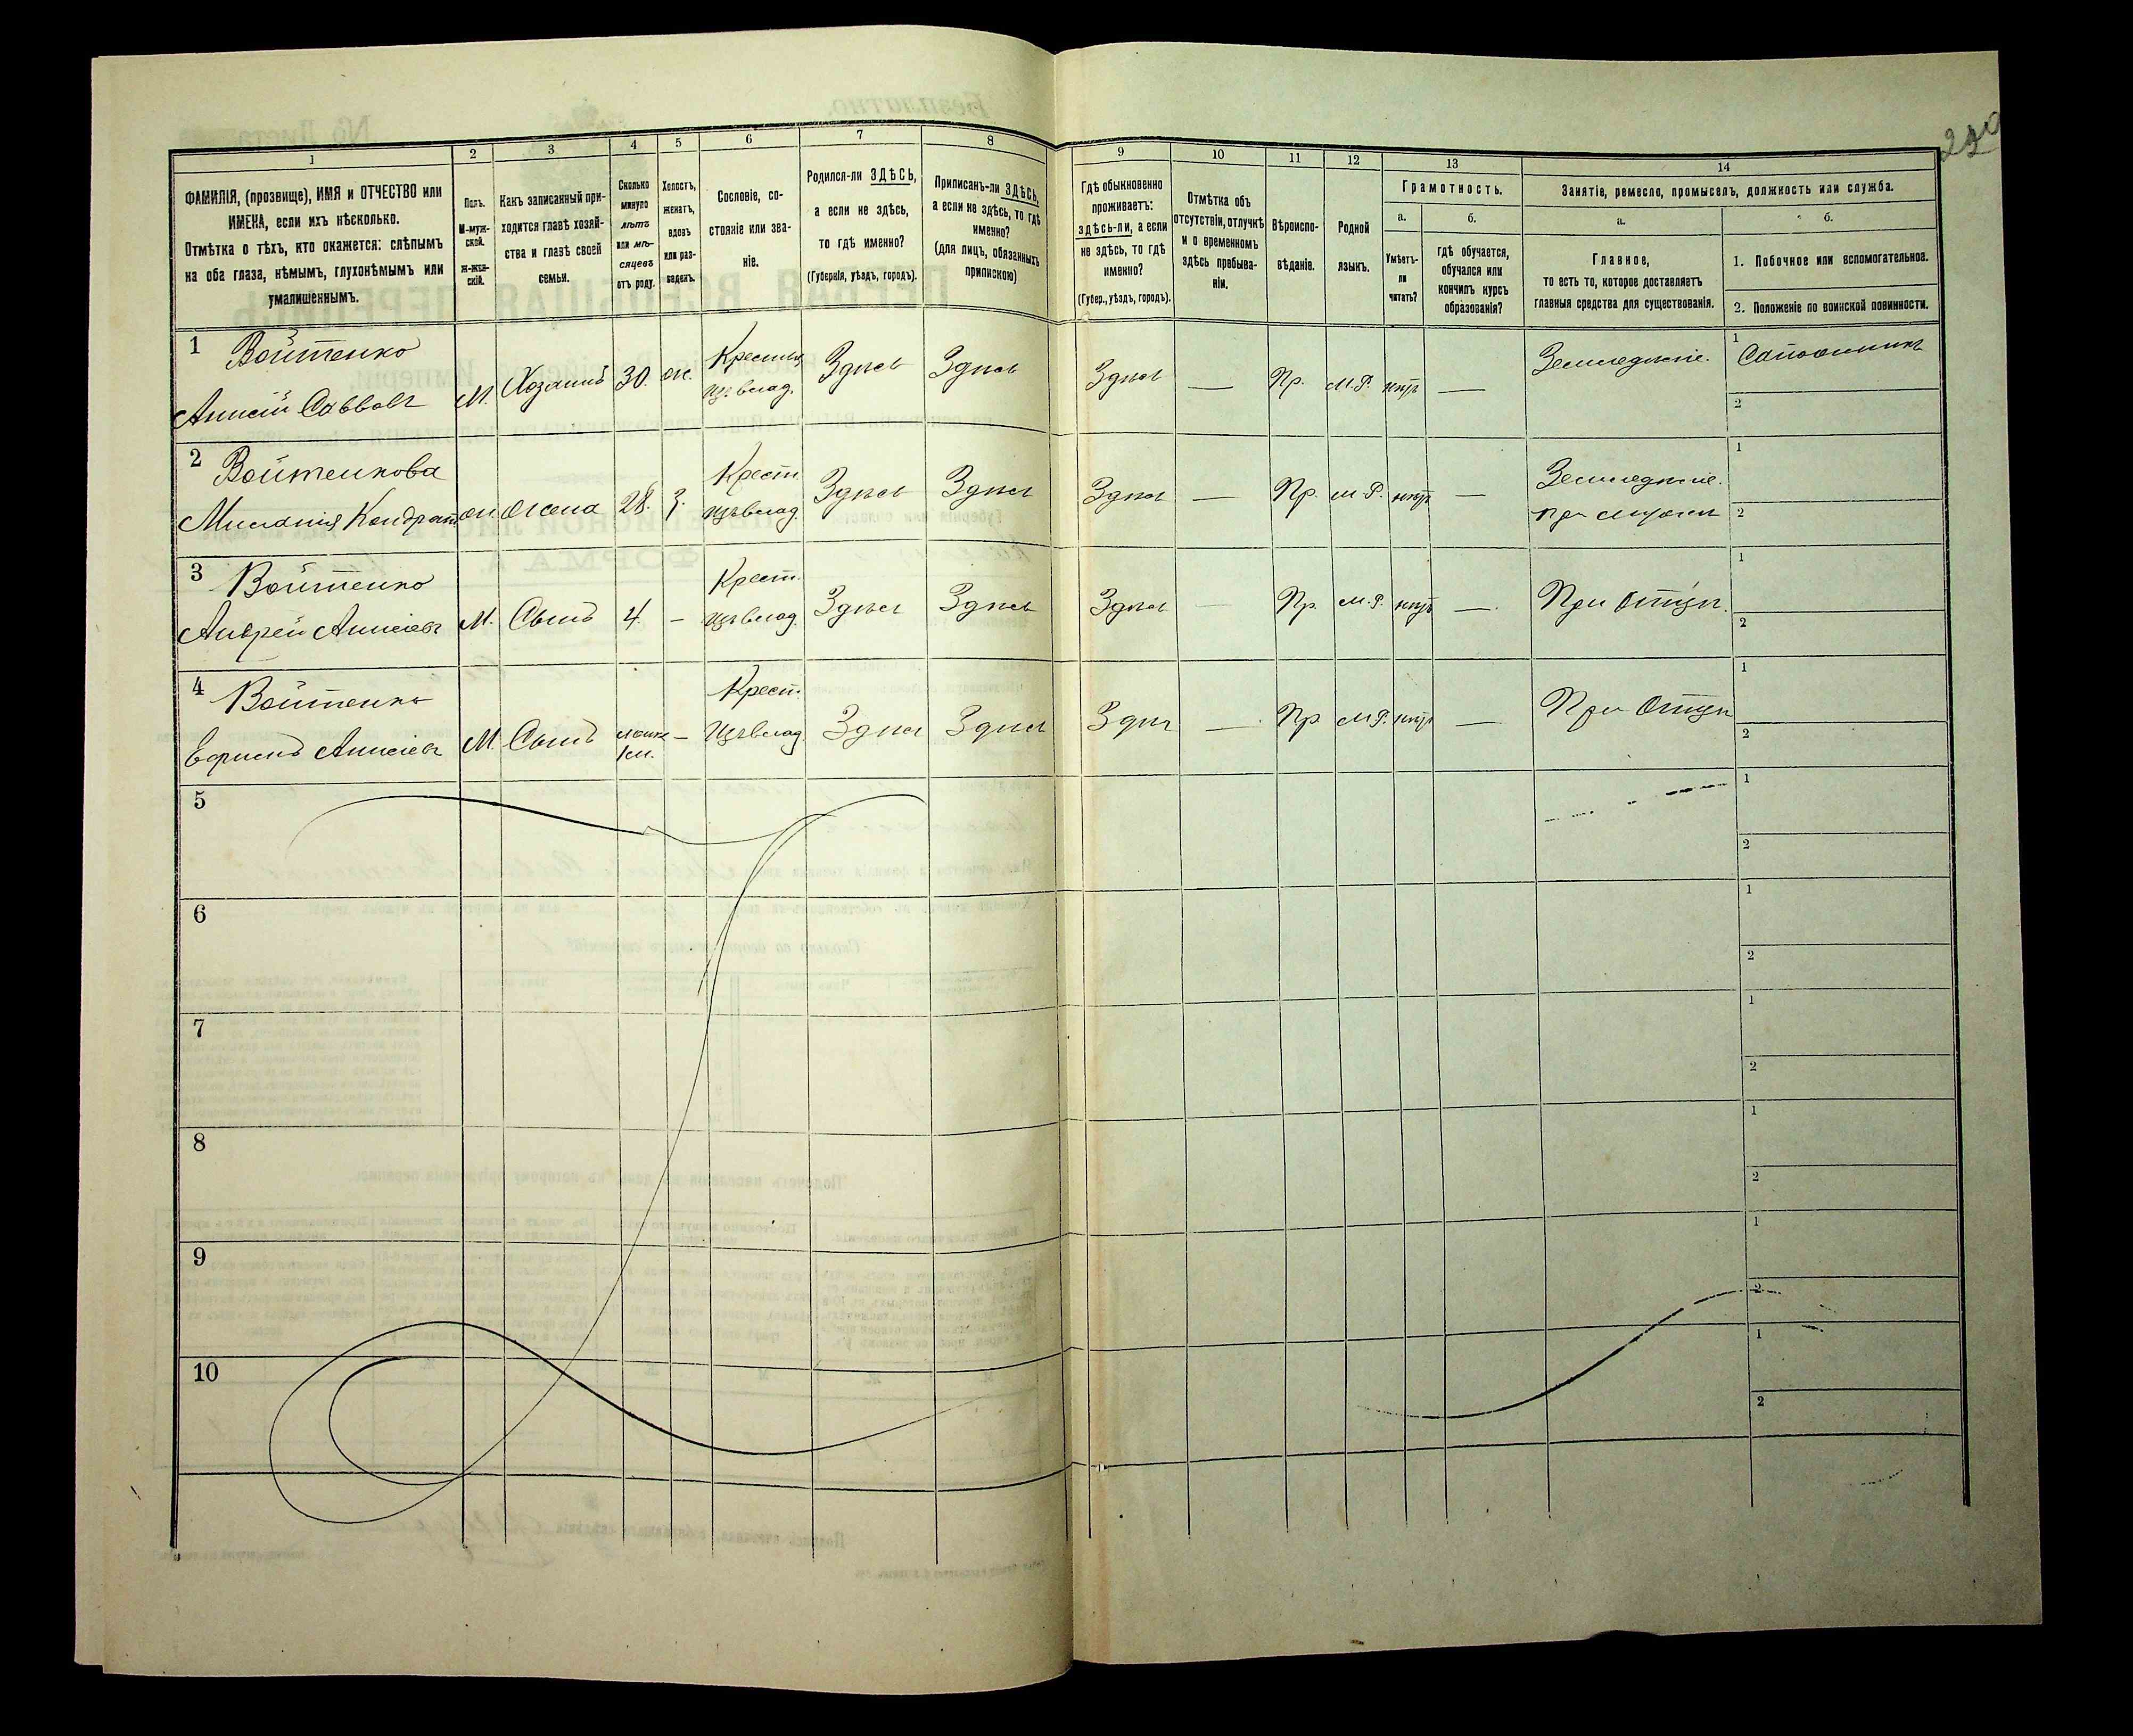 239
1 2 3 4 5 6 7 8 9 10 11 12 13 14
ФАМИЛІЯ, (прозвище), ИМЯ и ОТЧЕСТВО или
ИМЕНА, если ихъ нѣсколько.
Отмѣтка о тѣхъ, кто окажется: слѣпымъ
на оба глаза, нѣмымъ, глухонѣмымъ или
умалишеннымъ.
Полъ.
М-муж-
ской.
Ж-жен-
скій.
Какъ записанный при-
ходится главѣ хозяй-
ства и главѣ своей
семьи.
Сколько
минуло
лѣтъ
или мѣ-
сяцевъ
отъ роду.
Холостъ,
женатъ,
вдовъ
или раз-
веденъ.
Сословіе, со-
стояніе или зва-
ніе.
Родился-ли ЗДѢСЬ,
а если не здѣсь,
то гдѣ именно?
(Губернія, уѣздъ, городъ).
Приписанъ-ли ЗДѢСЬ,
а если не здѣсь, то гдѣ
именно?
(для лицъ, обязанныхъ
припискою)
Гдѣ обыкновенно
проживаетъ:
здѣсь-ли, а если
не здѣсь, то гдѣ
именно?
(Губер., уѣздъ, городъ).
Отмѣтка объ
отсутствіи, отлучкѣ
и о временномъ
здѣсь пребыва-
ніи.
Вѣроиспо-
вѣданіе.
Родной
языкъ.
Грамотность.
а.
Умѣетъ-
ли
читать?
б.
Гдѣ обучается,
обучался или
кончилъ курсъ
образованія?
Занятіе, ремесло, промыселъ, должность или служба.
а.
Главное,
то есть то, которое доставляетъ
главныя средства для существованія.
б.
1. Побочное или вспомогательное.
2. Положеніе по воинской повинности.
1 Войтенко
Алексій Саввовъ М. Хозяинъ 30. ж. Крестьян. Здѣсь Здѣсь Здѣсь — Пр. М.Р. нѣтъ — Земледѣліе. 1 Сапожникъ
2
2 Войтенкова
Меланія Кондрат. ж. Жена 28. З. Крест. Здѣсь Здѣсь Здѣсь — Пр. М.Р. нѣтъ — Земледѣліе. 1
при мужѣ 2
3 Войтенко
Андрей Алексіевъ М. Сынъ 4 — Крест. Здѣсь Здѣсь Здѣсь — Пр. М.Р. нѣтъ — При отцѣ. 1
2
4 Войтенко
Ефимъ Алексіевъ М. Сынъ 1 м. — Крест. Здѣсь Здѣсь Здѣсь — Пр М.Р. нѣтъ — При Отцѣ 1
2
5 1
2
6 1
2
7 1
2
8 1
2
9 1
2
10 1
2